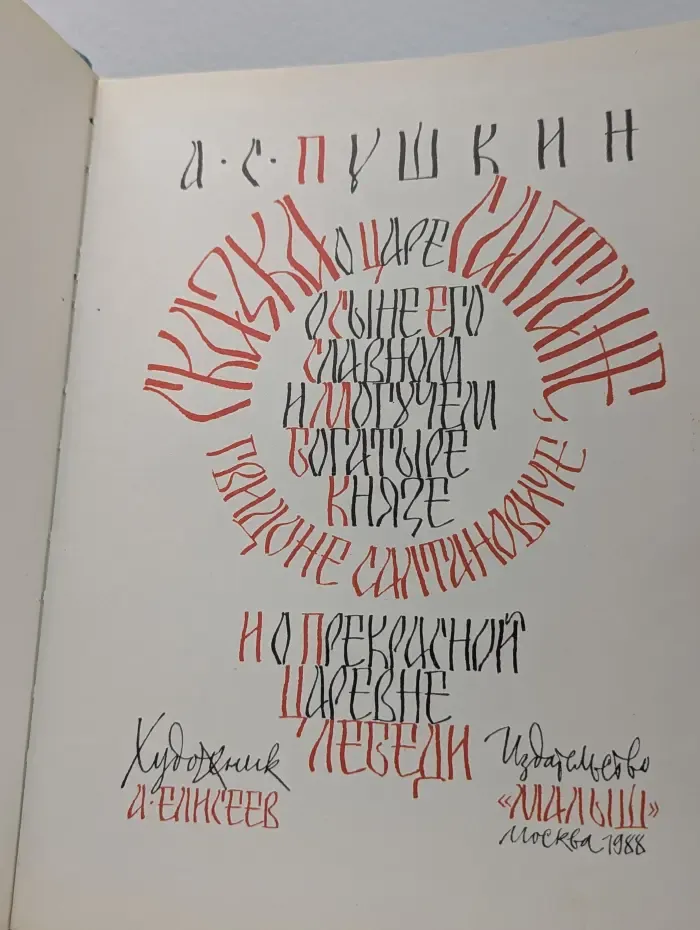 А·С·ПУШКИН
СКАЗКА О ЦАРЕ САЛТАНЕ
О СЫНЕ ЕГО
СЛАВНОМ
И МОГУЧЕМ
БОГАТЫРЕ
КНЯЗЕ
ГВИДОНЕ САЛТАНОВИЧЕ
И О ПРЕКРАСНОЙ
ЦАРЕВНЕ
ЛЕБЕДИ
Художник
А·ЕЛИСЕЕВ
Издательство
«МАЛЫШ»
Москва 1988